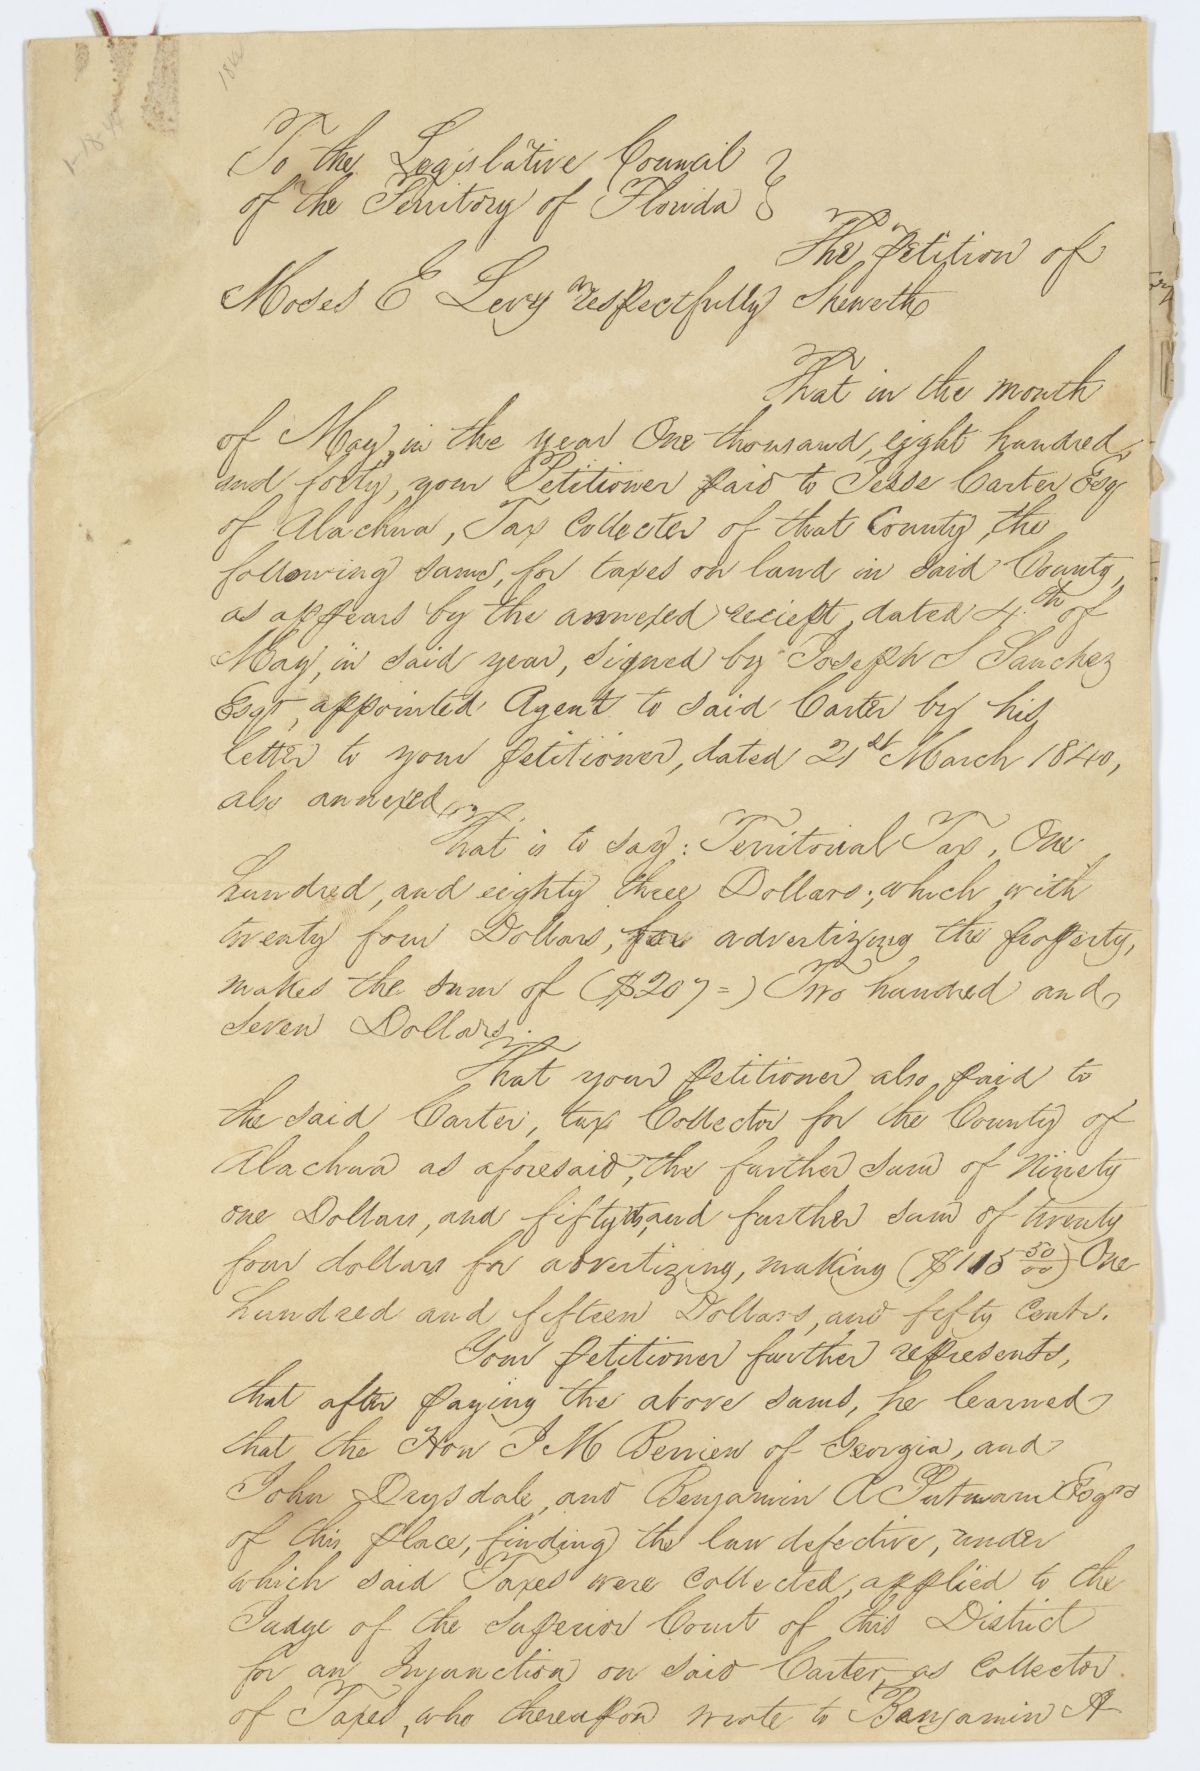 To the Legislative Council
of the Territory of Florida
The Petition of
Moses E Levy respectfully Sheweth
That in the month
of May, in the year One thousand, eight hundred,
and forty, your Petitioner paid to Jesse Carter Esq
of Alachua, Tax Collecter of that County, the
following sums, for taxes on land in said County,
as appears by the annexed reciept, dated 4th of
May, in said year, signed by Joseph S Sanchez
Esqr, appointed Agent to said Carter by his
letter to your petitioner, dated 21st March 1840,
also annexed,
That is to say: Territorial Tax, One
hundred, and eighty three Dollars; which with
twenty four Dollars, for advertizing the property,
makes the sum of ($207=) Two hundred and
seven Dollars;
That your petitioner also paid to
the said Carter, tax Collector for the County of
Alachua as aforesaid, the further sum of Ninety
one Dollars, and fifty cts, and further sum of twenty
four dollars for advertizing, making ($115 50/00) One
hundred and fifteen Dollars, and fifty Cents.
Your petitioner further represents,
that after paying the above sums, he learned
that the Hon J M Berrien of Georgia, and
John Drysdale, and Benjamin A Putnam Esqrs
of this place, finding the law defective, under
which said Taxes were collected, applied to the
Judge of the Superior Court of this District
for an Injunction on said Carter, as Collector
of Taxes, who thereupon wrote to Benjamin A